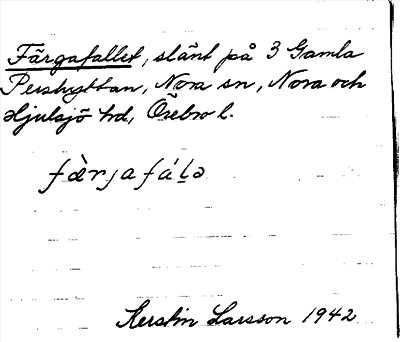 Färgafallet, slänt på 3 Gamla
Pershyttan, Nora sn, Nora och
Hjulsjö hd, Örebro l.
fæ̀rjafáḷə
Kerstin Larsson 1942